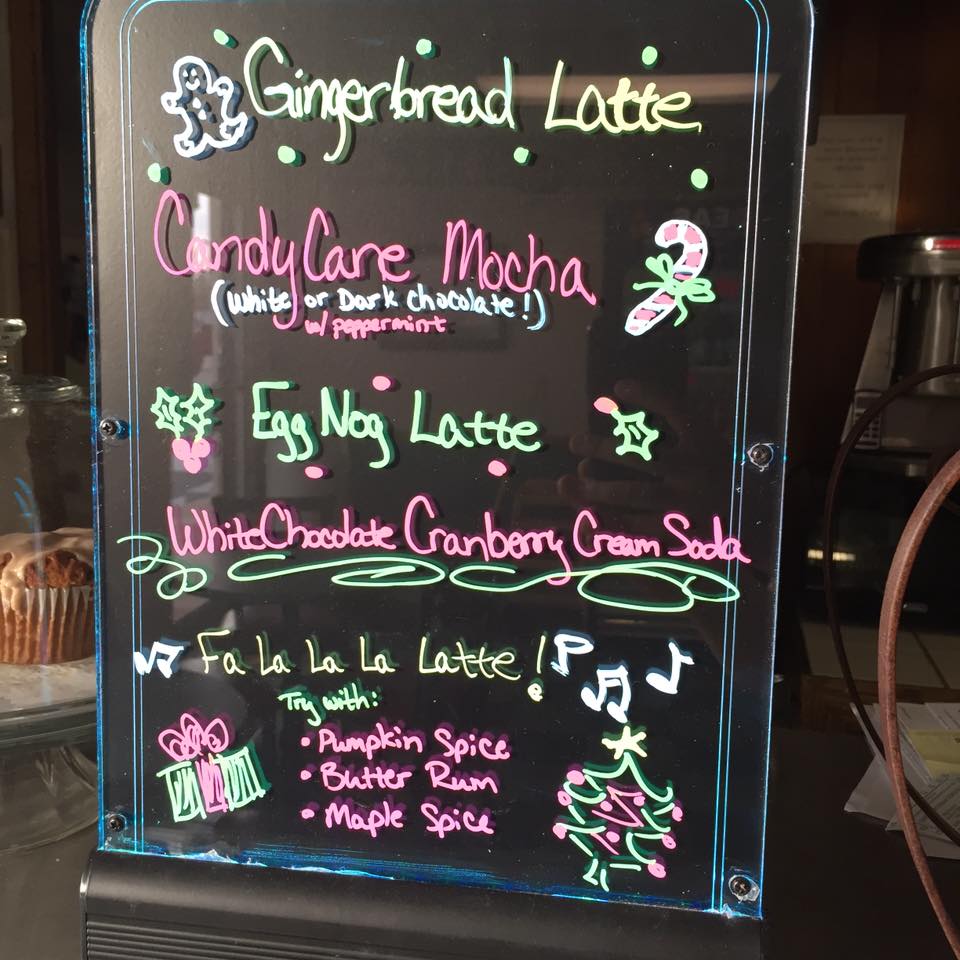 Gingerbread Latte
Candy Cane Mocha
(White or Dark chocolate!)
w/ peppermint
Egg Nog Latte
White Chocolate Cranberry Cream Soda
Fa La La La Latte!
Try with:
• Pumpkin Spice
• Butter Rum
• Maple Spice